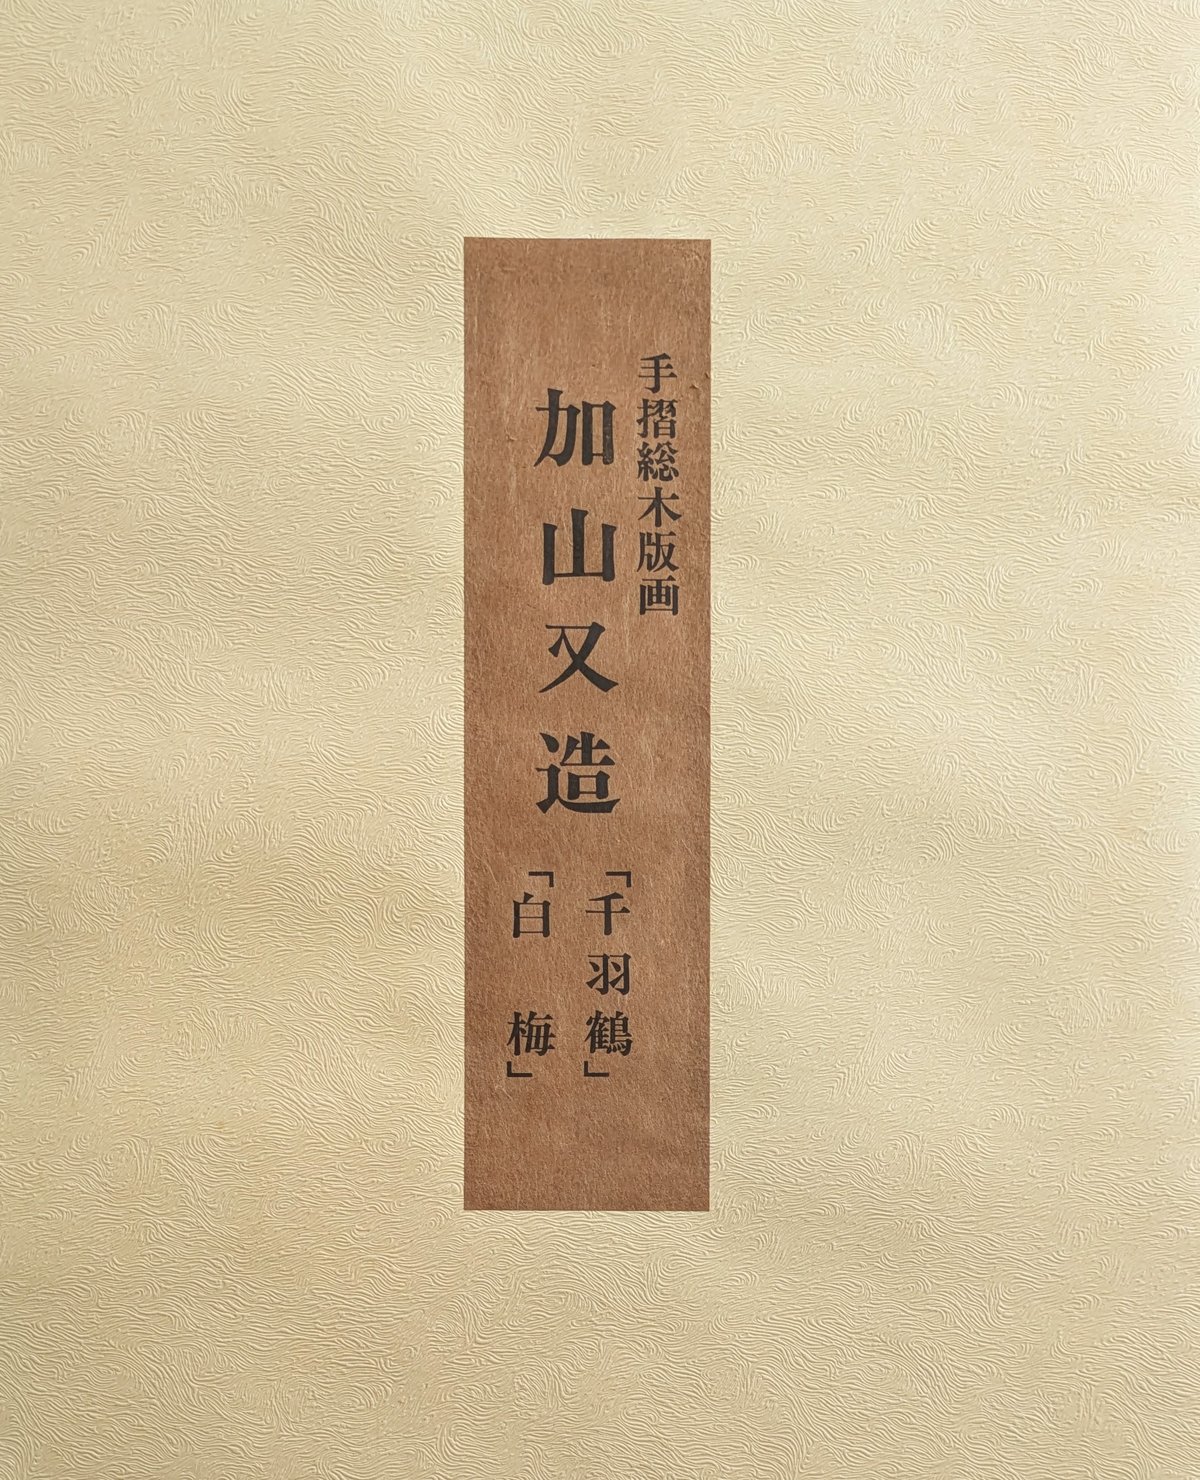 手摺総木版画
加山又造
「千羽鶴」
「白梅」